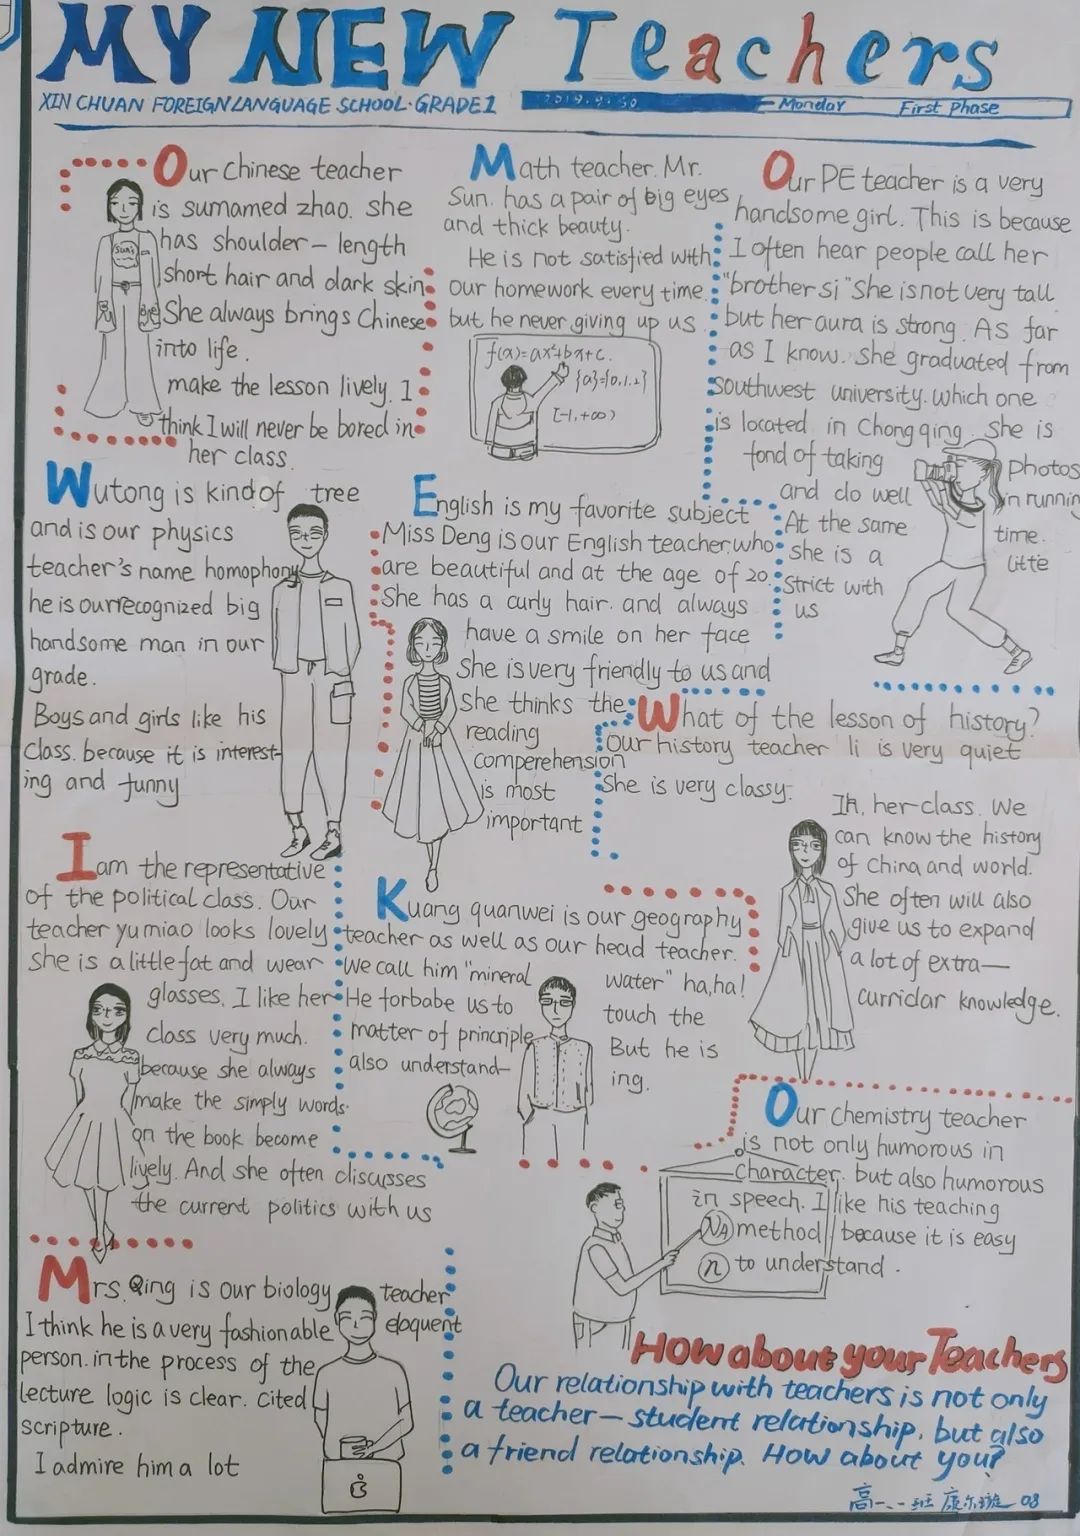 MY NEW Teachers
XIN CHUAN FOREIGN LANGUAGE SCHOOL·GRADE1
2019.9.30 Monday First Phase
Our Chinese teacher
is surnamed zhao. she
has shoulder - length
short hair and dark skin
She always brings Chinese
into life.
make the lesson lively. I
think I will never be bored in
her class.
Math teacher. Mr.
Sun. has a pair of big eyes
and thick beauty.
He is not satisfied with
our homework every time
but he never giving up us
f(x)=ax²+bx+c.
{a}={0,1,2}
[-1,+∞)
Our PE teacher is a very
handsome girl. This is because
I often hear people call her
"brother si" She is not very tall
but her aura is strong. As far
as I know. she graduated from
southwest university. which one
is located in Chongqing. she is
fond of taking photos
and do well in running
At the same time.
she is a litte
strict with
us
Wutong is kind of tree
and is our physics
teacher's name homophony
he is ourrecognized big
handsome man in our
grade.
Boys and girls like his
class. because it is interest-
ing and funny
English is my favorite subject
Miss Deng is our English teacher. who
are beautiful and at the age of 20.
She has a curly hair. and always
have a smile on her face
She is very friendly to us and
She thinks the
reading
comperehension
is most
important
What of the lesson of history?
Our history teacher li is very quiet
She is very classy.
In, her class. We
can know the history
of China and world.
She often will also
give us to expand
a lot of extra—
curriclar knowledge.
I am the representative
of the political class. Our
teacher yumiao looks lovely
she is a little fat and wear
glasses. I like her
class very much.
because she always
make the simply words
on the book become
lively. And she often discusses
the current politics with us
Kuang quanwei is our geography
teacher as well as our head teacher.
We call him "mineral water" ha,ha!
He forbabe us to touch the
matter of princriple But he is
also understand- ing.
Our chemistry teacher
is not only humorous in
character. but also humorous
in speech. I like his teaching
NA method because it is easy
n to understand.
Mrs. Qing is our biology teacher
I think he is a very fashionable eloquent
person. in the process of the
lecture logic is clear. cited
scripture.
I admire him a lot
How about your Teachers
Our relationship with teachers is not only
a teacher - student relationship, but also
a friend relationship. How about you?
高一、一班 康尔璇 08